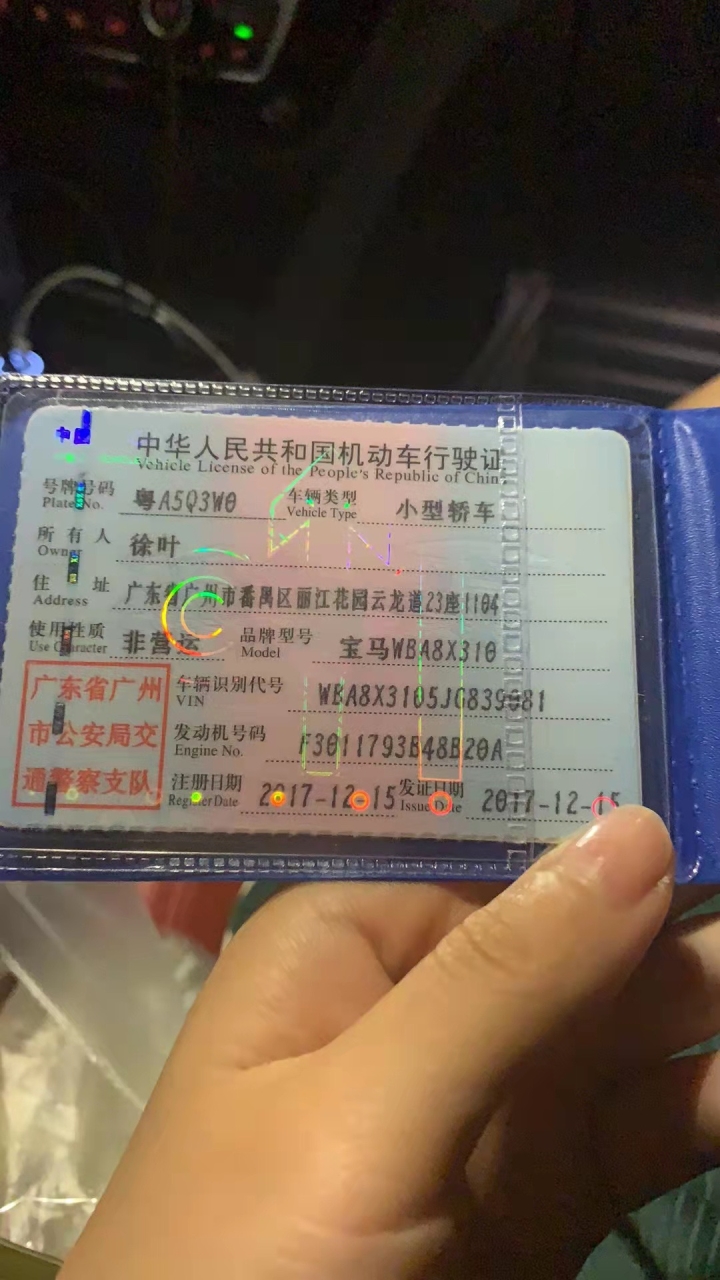 中国
中华人民共和国机动车行驶证
Vehicle License of the People's Republic of China
号牌号码 粤A5Q3W0 车辆类型 小型轿车
Plate No. Vehicle Type
所有人 徐叶
Owner
住址 广东省广州市番禺区丽江花园云龙道23座1104
Address
使用性质 非营运 品牌型号 宝马WBA8X310
Use Character Model
广东省广州
市公安局交
通警察支队
车辆识别代号 WBA8X3105JG839081
VIN
发动机号码 F3011793B48B20A
Engine No.
注册日期 2017-12-15 发证日期 2017-12-15
Register Date Issue Date